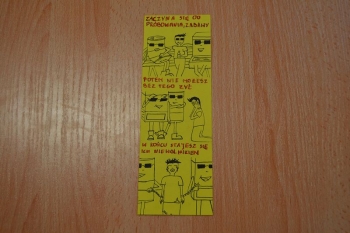 ZACZYNA SIĘ OD
PRÓBOWANIA, ZABAWY
POTEM NIE MOŻESZ
BEZ TEGO ŻYĆ
W KOŃCU STAJESZ SIĘ
ICH NIEWOLNIKIEM